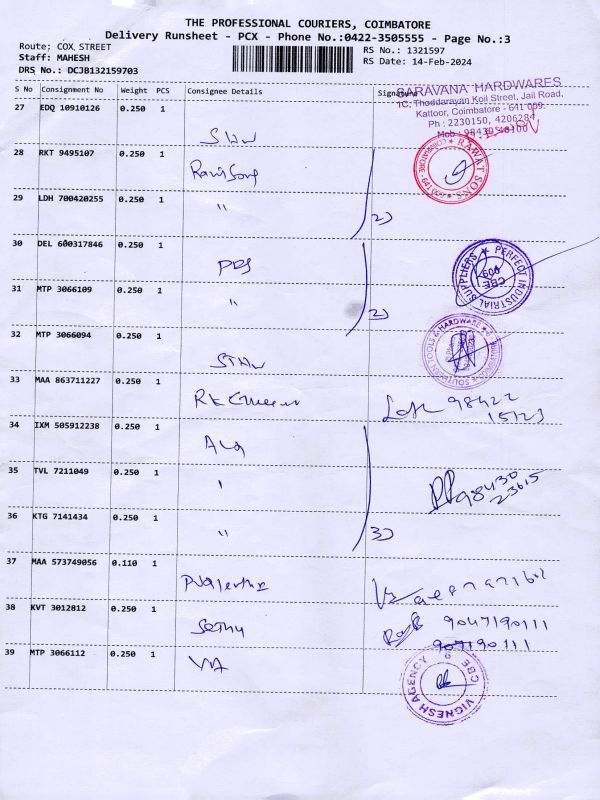 THE PROFESSIONAL COURIERS, COIMBATORE
Delivery Runsheet - PCX - Phone No.:0422-3505555 - Page No.:3
Route; COX STREET
RS No.: 1321597
Staff: MAHESH
RS Date: 14-Feb-2024
DRS No.: DCJB132159703
S No Consignment No Weight PCS Consignee Details Signature
SARAVANA HARDWARES
1C, Thoddarayan Koil Street, Jail Road,
Kattoor, Coimbatore - 641 009.
Ph : 2230150, 4206284
Mob : 98430 48100
27 EDQ 10910126 0.250 1
SHW
28 RKT 9495107 0.250 1
RAWAT SONS
COIMBATORE - 641 009
29 LDH 700420255 0.250 1
"
2)
30 DEL 600317846 0.250 1
PERFECT INDUSTRIAL SUPPLIERS
CBE
31 MTP 3066109 0.250 1
"
2)
32 MTP 3066094 0.250 1
STHW
TOOLS & HARDWARE
33 MAA 863711227 0.250 1
98422
15123
34 IXM 505912238 0.250 1
35 TVL 7211049 0.250 1
98430
23615
36 KTG 7141434 0.250 1
"
3)
37 MAA 573749056 0.110 1
38 KVT 3012812 0.250 1
Sethu
9047190111
39 MTP 3066112 0.250 1
VA
VIGNESH AGENCY
CBE